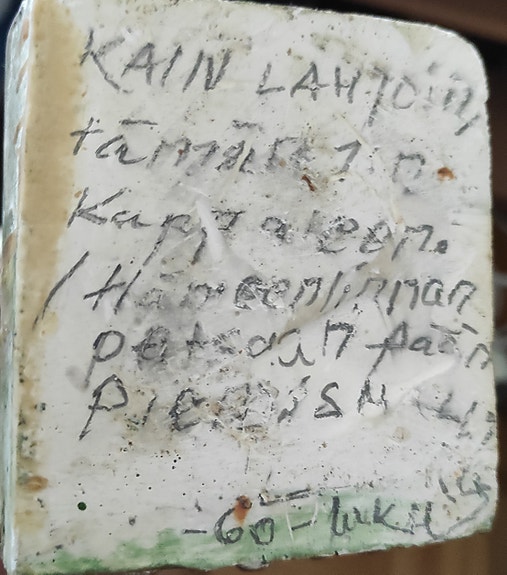 KAIN LAHJOIN,
tämän
Kappaleen.
/Hämeenlinnan
patsaan pään
PIENOISM
-60- luku